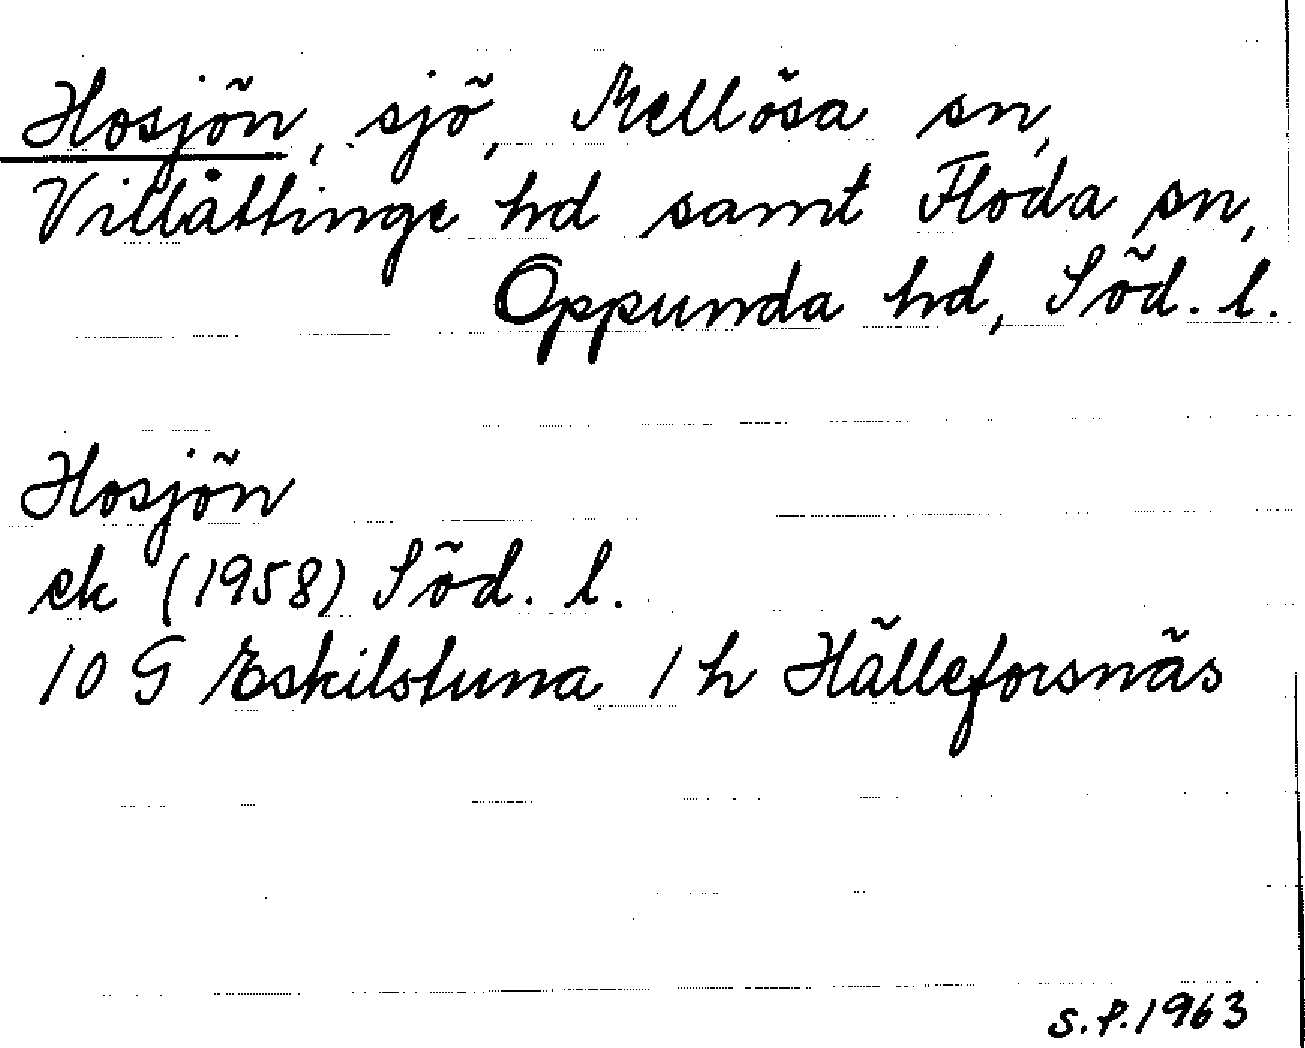 Hosjön, sjö, Mellösa sn,
Villåttinge hd samt Floda sn,
Oppunda hd, Söd. l.
Hosjön
ek (1958) Söd. l.
10 G Eskilstuna 1 h Hälleforsnäs
S.P. 1963